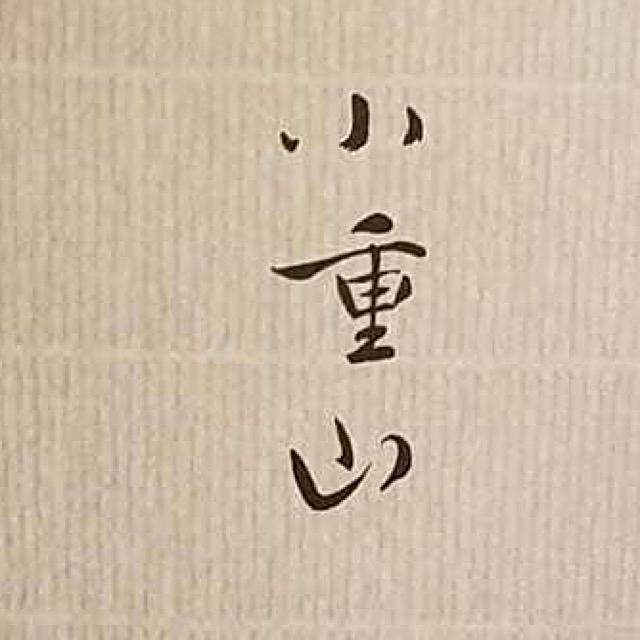 小重山